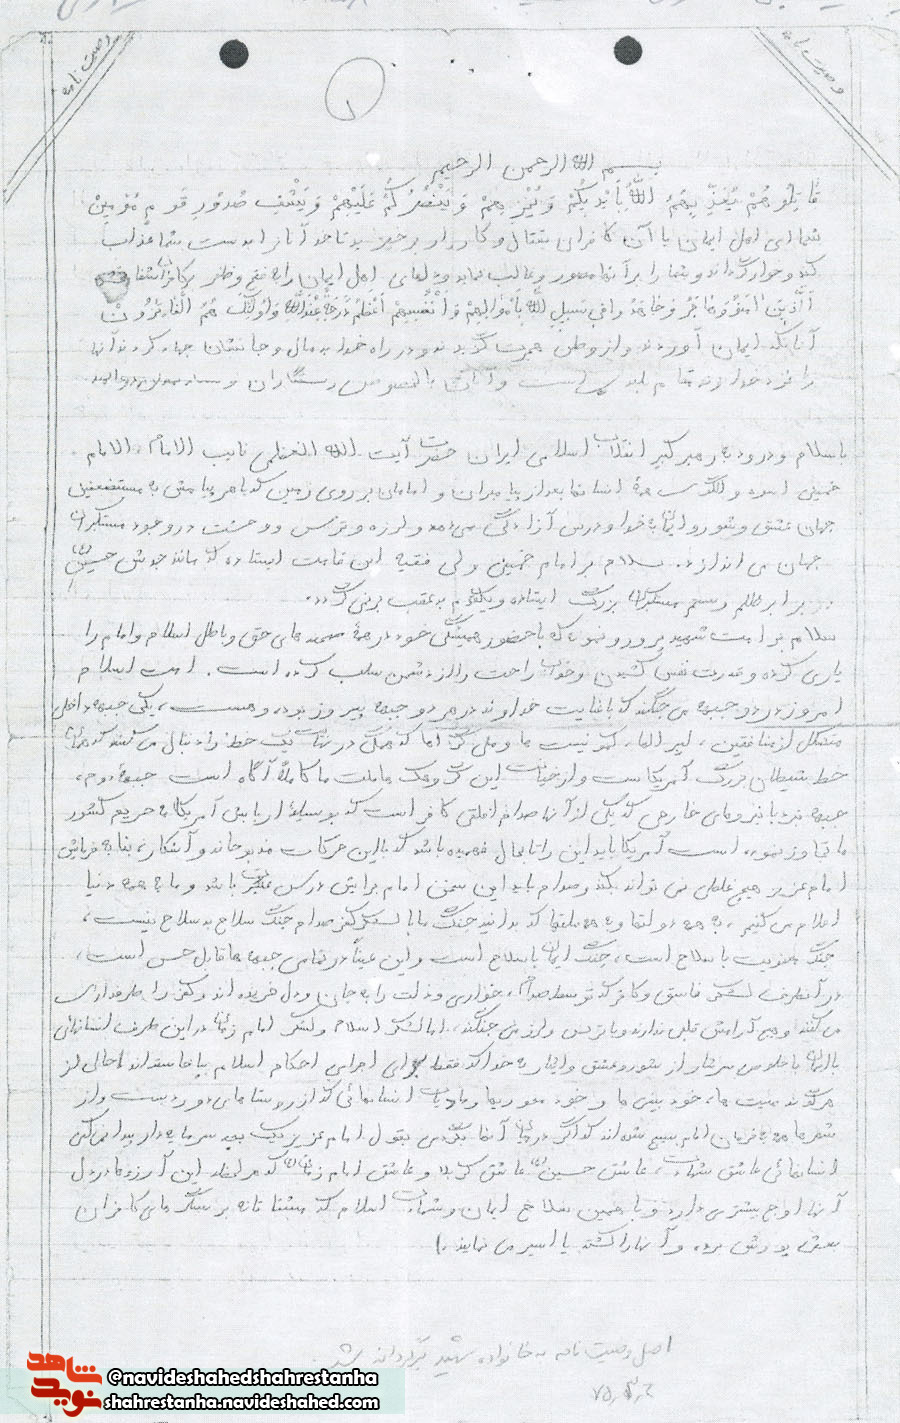 وصیت نامه
وصیت نامه
۱
بسم الله الرحمن الرحیم
قَاتِلُوهُمْ یُعَذِّبْهُمُ اللَّهُ بِأَیْدِیکُمْ وَیُخْزِهِمْ وَیَنْصُرْکُمْ عَلَیْهِمْ وَیَشْفِ صُدُورَ قَومٍ مُؤمِنِینْ
شما ای اهل ایمان با آن کافران بقتال و کارزار برخیزید تا خدا آنان را بدست شما عذاب
کند و خوار گرداند و شما را بر آنها منصور و غالب نماید و دلهای اهل ایمان را به فتح و ظفر بر کافران شفا
اَلَّذِینَ امَنُوا وَهَاجَرُوا وَجَاهَدُوا فِی سَبِیلِ اللَّهِ بِأَمْوَالِهِمْ وَأَنْفُسِهِمْ أَعْظَمُ دَرَجَةً عِنْدَاللَّهِ وَاُولَئِکَ هُمُ الْفَائِزُونَ
آنانکه ایمان آوردند و از وطن هجرت گزیدند و در راه خدا با مال و جانشان جهاد کردند آنها
را نزد خداوند مقام بلندی است و آنان بالخصوص رستگاران و سعادتمندان دو عالمند
باسلام و درود به رهبر کبیر انقلاب اسلامی ایران حضرت آیت الله العظمی نایب الامام، الامام
خمینی اسوه و الگوی همۀ انسانها بعد از پیامبران و امامان بر روی زمین که با هر پیامش به مستضعفین
جهان عشق و شور و ایمان به خدا و درس آزادگی می‌دهد و لرزه و ترس و وحشت در وجود مستکبران
جهان می اندازد. سلام بر امام خمینی ولی فقیه این قامت ایستاده که مانند جدش حسین (ع)
در برابر ظلم و ستم مستکبران بزرگ ایستاده و یکقدم به عقب برنمی گردد.
سلام بر امت شهید پرور و نمونه که با حضور همیشگی خود در همۀ صحنه های حق و باطل اسلام و امام را
یاری کرده و قدرت نفس کشیدن و خواب راحت را از دشمن سلب کرده است. امت اسلام
امروز در دو جبهه می جنگند که با عنایت خداوند در هر دو جبهه پیروز بوده و هست، یکی جبهه داخلی
متشکل از منافقین، لیبرالها، کمونیست ها و ملی گراها که همگی در نهایت یک خط را دنبال می کنند که همانا
خط شیطان بزرگ آمریکاست و از خیانات این گروهک ها ملت ما کاملاً آگاه است جبهۀ دوم،
جبهه نبرد با نیروهای خارجی که یکی از آنها صدام افلقی کافر است که بوسیلۀ اربابش آمریکا به حریم کشور
ما تجاوز نموده است آمریکا باید این را تابحال فهمیده باشد که با این حرکات مذبوحانه و آشکار، بنا به فرمایش
امام عزیز هیچ غلطی نمی تواند بکند و صدام باید این سخن امام برایش درس عبرت باشد و ما به همه دنیا
اعلام می کنیم، به همه دولتها و همه ملتها که بدانند جنگ ما با لشکر کفر صدام جنگ سلاح به سلاح نیست،
جنگ معنویت با سلاح است، جنگ ایمان با سلاح است و این عیناً در تمامی جبهه ها قابل حس است،
در آنطرف لشکر فاسق و کافر که توسط صدام، خواری و ذلت را به جان و دل خریده اند و کفر را طرفداری
می کنند و هیچ آرامش قلبی ندارند و با ترس و لرز می جنگند، اما لشکر اسلام و لشکر امام زمان در این طرف انسانهای
با ایمان با خلوص سرشار از شور و عشق و ایثار به خدا که فقط برای اجرای احکام اسلام بپا خاسته‌اند خالی از
هرگونه منیت ها، خود بینی ها و خود محوریها و مادیات انسانهائی که از روستاهای دوردست و از
شهرها همه به فرمان امام بسیج شده‌اند که اگر در میان آنها بگردی بقول امام عزیز یک بچه سرمایه‌دار پیدا نمی‌کنی
انسانهائی عاشق شهادت، عاشق حسین (ع) عاشق کربلا و عاشق امام زمان که هر لحظه این آرزوها در دل
آنها اوج بیشتری دارد و با همین سلاح ایمان و شهادت اسلام که مشتاقانه بر سنگرهای کافران
بعثی یورش برده و آنها را کشته یا اسیر می نمایند.)
اصل وصیت نامه به خانواده شهید برگردانده شد.
شاهد
نوید
@navideshahedshahrestanha
shahrestanha.navideshahed.com